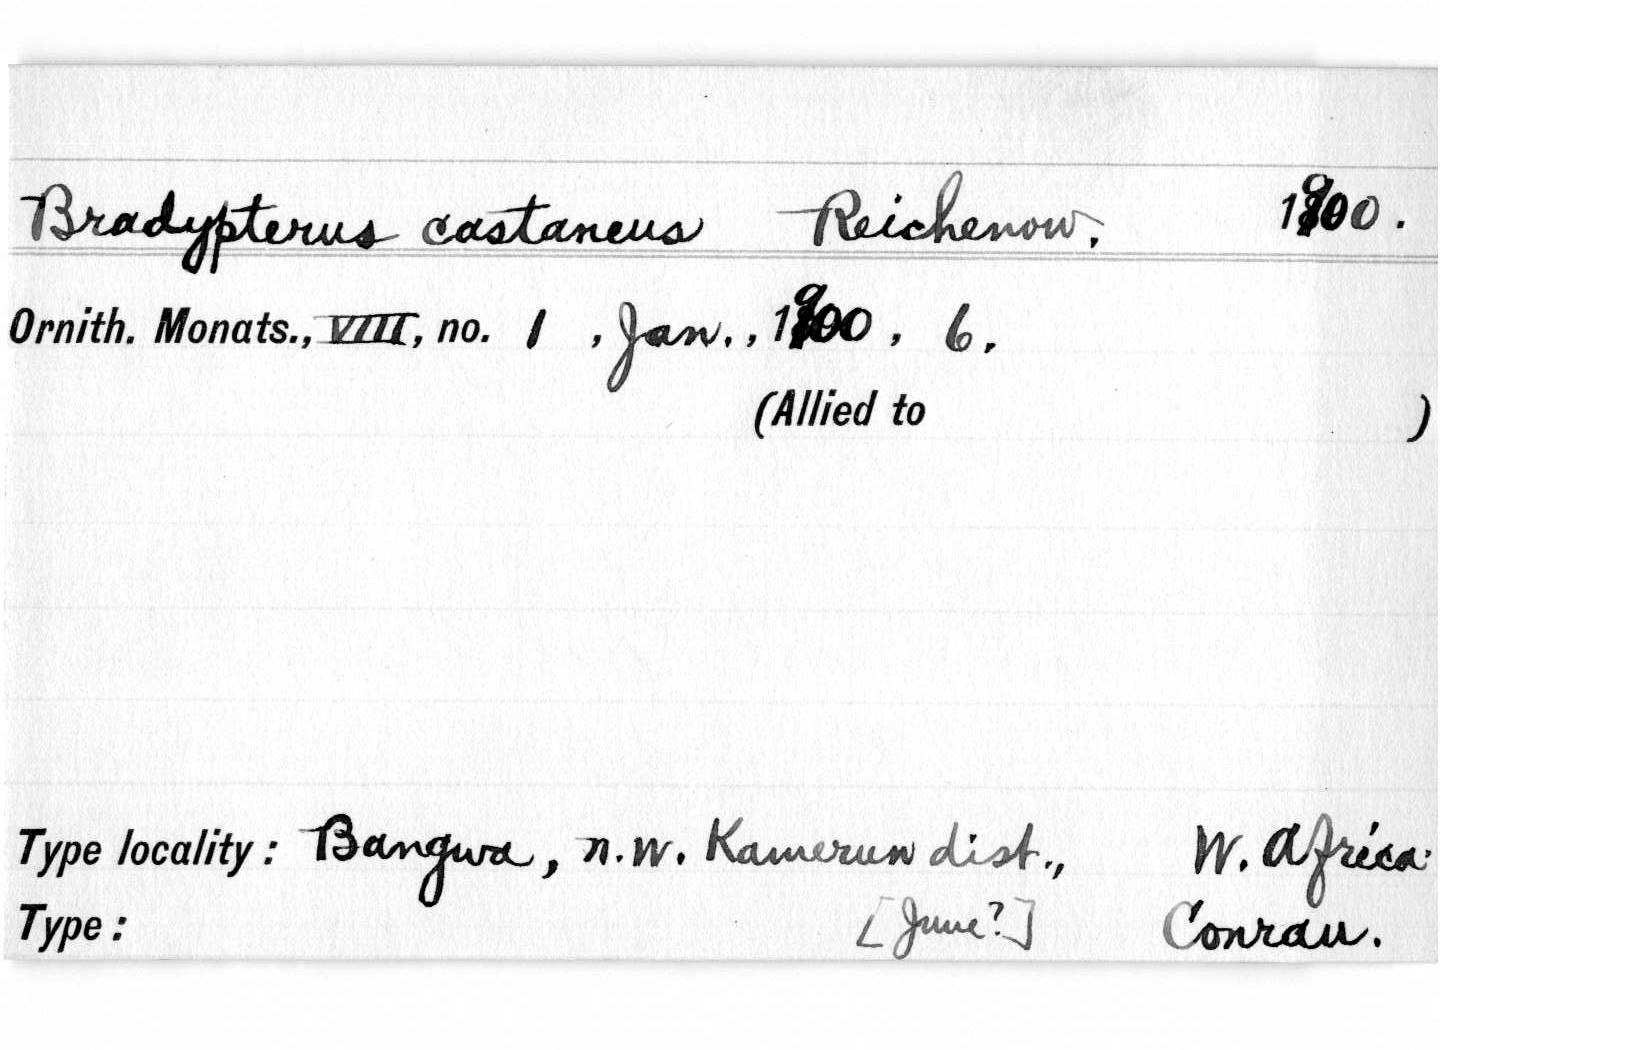 Bradypterus castaneus Reichenow, 1900.
Ornith. Monats., VIII, no. 1, Jan., 1900, 6.
(Allied to )
Type locality: Bangwa, n.w. Kamerun dist., W. Africa.
Type: [June?] Conrau.